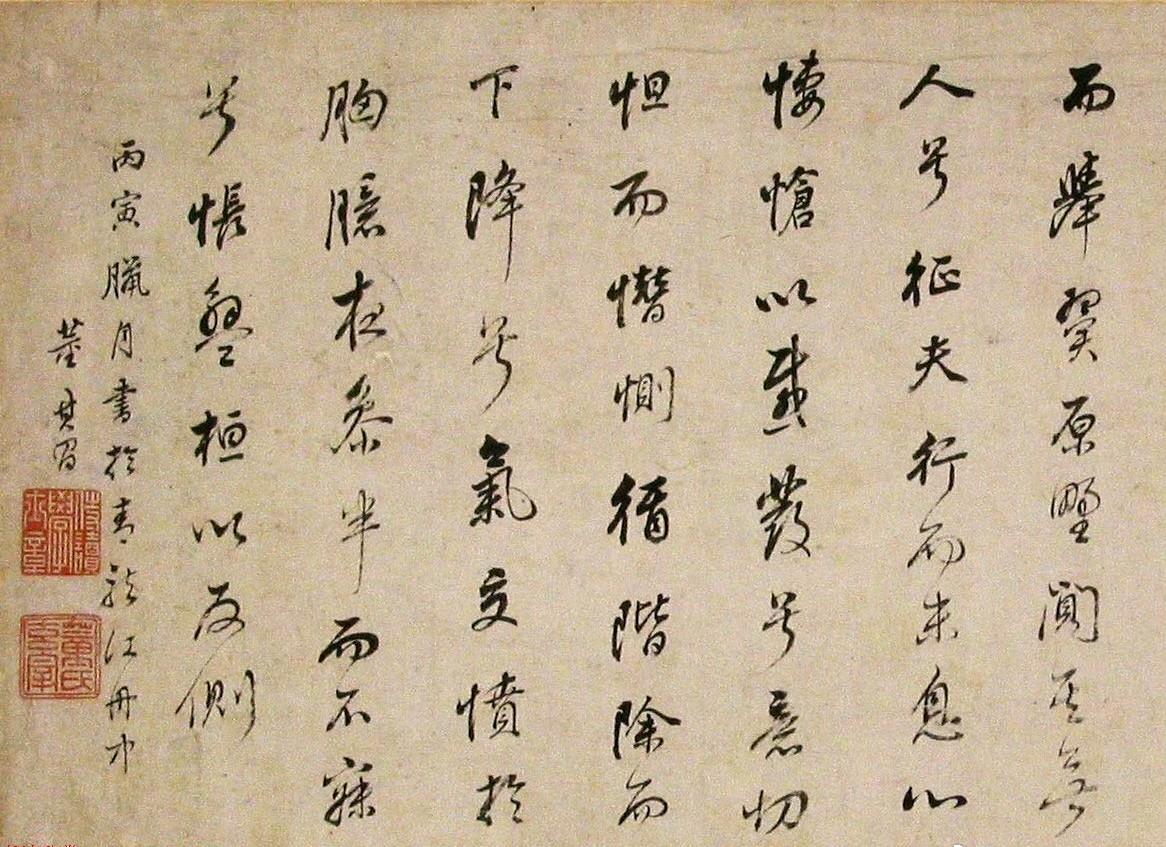 而舉翼原野闃其無
人兮征夫行而未息心
悽愴以感發兮意忉
怛而憯惻循階除而
下降兮氣交憤於
胸臆夜參半而不寐
兮悵盤桓以反側
丙寅臘月書於青龍江舟中
董其昌
董氏玄宰